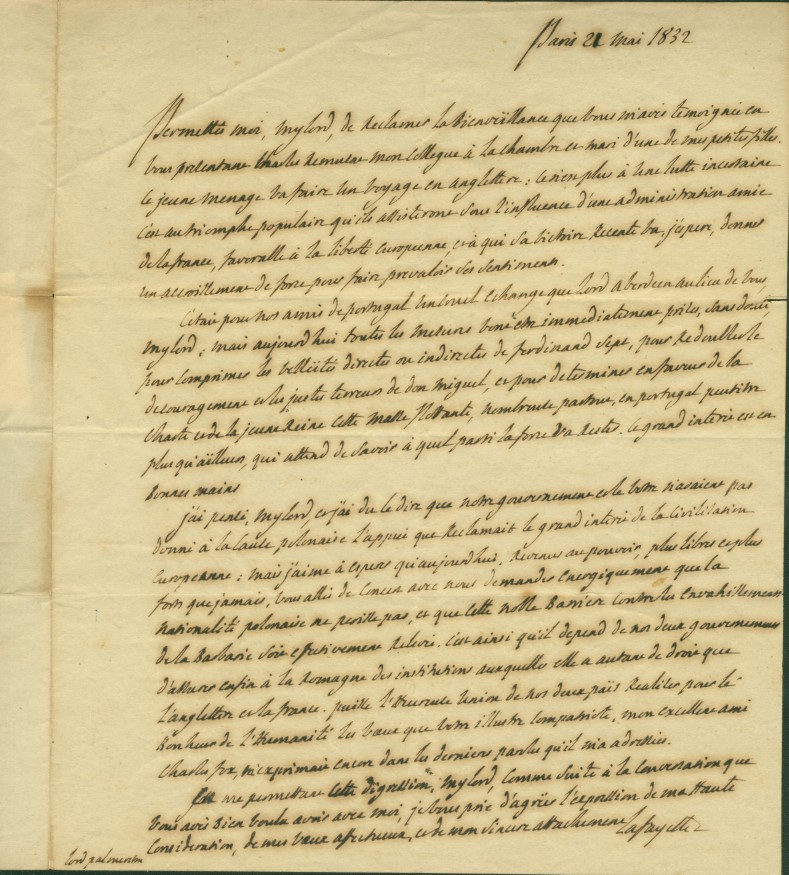 Paris 21 mai 1832
Permettés moi, mylord, de reclamer la bienveillance que vous m'avés temoignée en
vous presentant Charles Remusat mon collegue à la chambre et mari d'une de mes petites filles.
le jeune menage va faire un voyage en angleterre; ce n'est plus à une lutte incertaine
c'est au triomphe populaire qu'ils assisteront sous l'influence d'une administration amie
de la france, favorable à la liberté europeenne, et à qui sa victoire recente va, j'espere, donner
un accroissement de force pour faire prevaloir ses sentiments.
C'etait pour nos amis de portugal un cruel echange que lord aberdeen au lieu de vous,
mylord; mais aujourd'hui toutes les mesures vont etre immediatement prises, sans doute,
pour comprimer les velléités directes ou indirectes de ferdinand sept, pour redoubler le
decouragement et les justes terreurs de don miguel, et pour determiner en faveur de la
charte et de la jeune Reine cette masse flottante, nombreuse partout, en portugal peutetre
plus qu'ailleurs, qui attend de savoir à quel parti la force va rester. Ce grand interet est en
bonnes mains
j'ai pensé, mylord, et j'ai du le dire que notre gouvernement et le votre n'avaient pas
donné à la cause polonaise l'appui que reclamait le grand interet de la civilisation
europeenne: mais j'aime à esperer qu'aujourd'hui, revenus au pouvoir, plus libres et plus
forts que jamais, vous allés de concert avec nous demander energiquement que la
nationalité polonaise ne perisse pas, et que cette noble barriere contre les envahissements
de la barbarie soit effectivement relevée. C'est ainsi qu'il depend de nos deux gouvernements
d'assurer enfin à la Romagne des institutions auxquelles elle a autant de droit que
l'angleterre et la france. puisse l'heureuse union de nos deux païs realiser pour le
bonheur de l'humanité les vœux que votre illustre compatriote, mon excellent ami
Charles fox, m'exprimait encore dans les dernieres paroles qu'il m'a adressées.
En me permettant cette digression, mylord, comme suite à la conversation que
vous avés bien voulu avoir avec moi, je vous prie d'agréer l'expression de ma haute
consideration, de mes vœux affectueux, et de mon sincere attachement
Lafayette
lord palmerston